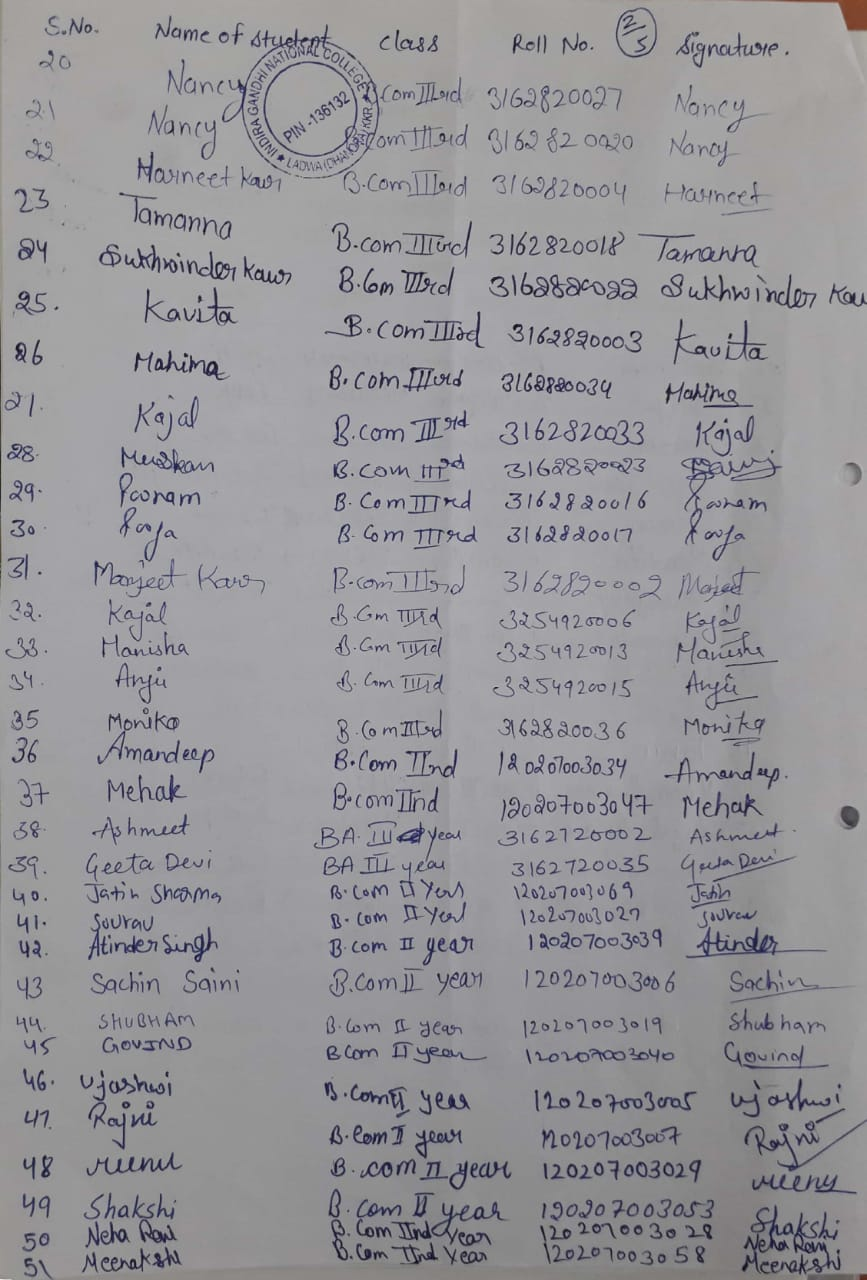 S.No. Name of Student Class Roll No. 2/5 Signature.
INDIRA GANDHI NATIONAL COLLEGE
PIN -136132
LADWA (DHANORA) KKR.
20 Nancy B.Com IIIrd 3162820027 Nancy
21 Nancy B.Com IIIrd 3162820020 Nancy
22. Harneet Kaur B.Com IIIrd 3162820004 Harneet
23 Tamanna B.com IIIrd 3162820018 Tamanna
24 Sukhwinder Kaur B.Com IIIrd 3162820022 Sukhwinder Kau
25. Kavita B.com IIIrd 3162820003 Kavita
26 Mahima B.com IIIrd 3162820034 Mahima
27. Kajal B.com IIIrd 3162820033 Kajal
28. Muskan B.com IIIrd 3162820023
29. Poonam B.Com IIIrd 3162820016 Poonam
30. Pooja B.Com IIIrd 3162820017 Pooja
31. Manjeet Kaur B.com IIIrd 3162820002 Manjeet
32. Kajal B.Com IIIrd 3254920006 Kajal
33. Manisha B.Com IIIrd 3254920013 Manisha
34. Anju B.Com IIIrd 3254920015 Anju
35 Monika B.Com IIIrd 3162820036 Monika
36 Amandeep B.Com IInd 120207003034 Amandeep.
37 Mehak B.com IInd 120207003047 Mehak
38. Ashmeet BA III year 3162720002 Ashmeet.
39. Geeta Devi BA III year 3162720035 Geeta Devi
40. Jatin Sharma B.Com II Year 120207003069 Jatin
41. Sourav B.Com II Year 120207003027 Sourav
42. Atinder Singh B.com II year 120207003039 Atinder
43 Sachin Saini B.Com II year 120207003006 Sachin
44. SHUBHAM B.Com II year 120207003019 Shubham
45 GOVIND BCom II year 120207003040 Govind
46. Ujashwi B.Com II year 120207003005 Ujashwi
47. Rajni B.Com II year 120207003007 Rajni
48 Meenu B.com II year 120207003029 Meenu
49 Shakshi B.com II year 120207003053 Shakshi
50 Neha Rani B.Com IInd Year 120207003028 Neha Rani
51 Meenakshi B.Com IInd Year 120207003058 Meenakshi